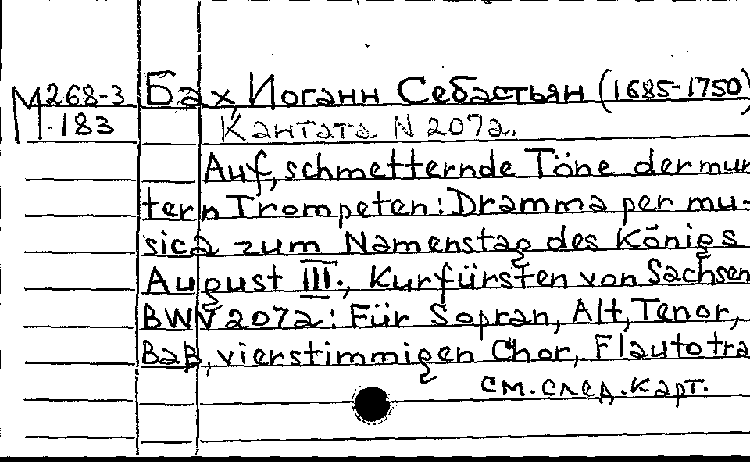 М 268-3 Бах, Иоганн Себастьян (1685-1750)
183 Кантата N 207a.
Auf, schmetternde Töne der mun
tern Trompeten: Dramma per mu-
sica zum Namenstag des Königs
August III., Kurfürsten von Sachsen
BWV 207a: Für Sopran, Alt, Tenor,
Baß, vierstimmigen Chor, Flauto tra
см. след. карт.